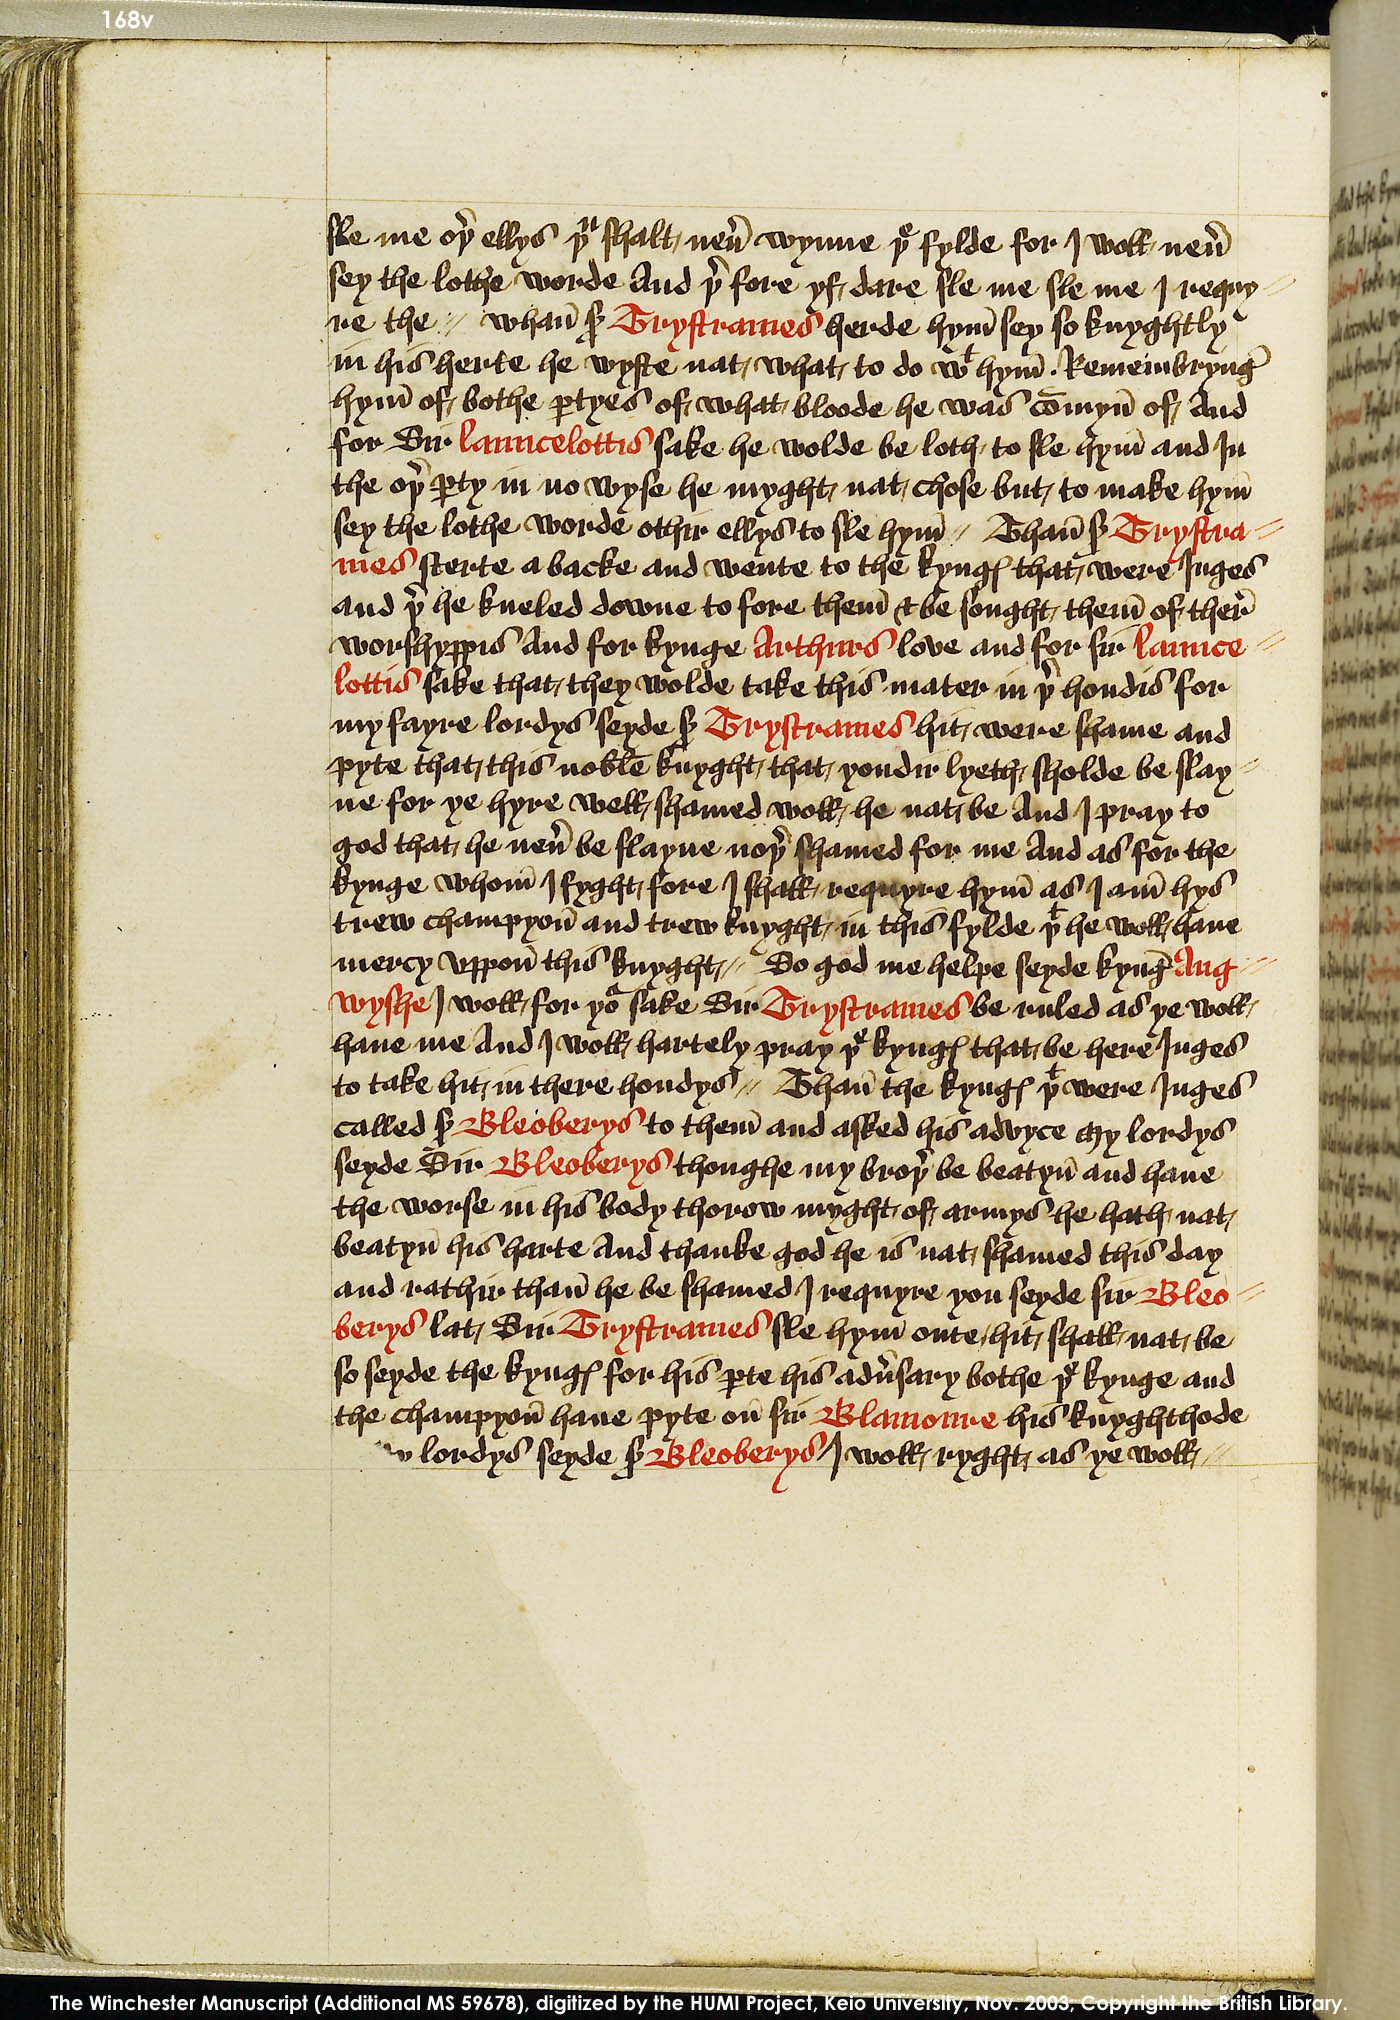 168v
sle me oþ̉ ellys þᵘ shalt neủ wynne þᵉ fylde for I woll neủ
sey the lothe worde And þ̉ fore yf dare sle me sle me I requy
re the // whan̄ sꝭ Trystrames herde hym̄ sey so knyghtly
in his herte he wyste nat what to do wᵗ hym̄ . Remembrynḡ
hym̄ of bothe ꝑtyes of what bloode he was cōmyn̄ of And
for Sir launcelottis sake he wolde be loth to sle hym̄ and In
the oþ̉ ꝑty in no wyse he myght nat chose but to make hym̄
sey the lothe worde othir ellys to sle hym̄ // Than̄ sꝭ Trystra
mes sterte a backe and wente to the kyngꝭ that were Iuges
and þ̉ he kneled downe to fore them̄ & be sought them̄ of ther̄
worshyppis And for kynge Arthurs love and for sir launce
lottis sake that they wolde take this mater in þ̉ hondis for
my fayre lordys seyde sꝭ Trystrames hit were shame and
pyte that this noble knyght that yondir lyeth sholde be slay
ne for ye hyre well shamed woll he nat be And I pray to
god that he neủ be slayne noþ̉ shamed for me And as for the
kynge whom̄ I fyght fore I shall requyre hym̄ as I am̄ hys
trew champyon̄ and trew knyght in this fylde þᵗ he woll haue
mercy vppon̄ this knyght // So god me helpe seyde kynḡ Ang
wyshe I woll for yoʳ sake Sir Trystrames be ruled as ye woll
haue me And I woll hartely pray þᵉ kyngꝭ that be here Iuges
to take hit in there hondys // Than̄ the kyngꝭ þᵗ were Iuges
called sꝭ Bleoberys to them̄ and asked his advyce My lordys
seyde Sir Bleoberys thoughe my broþ̉ be beatyn̄ and haue
the worse in his body thorow myght of armys he hath nat
beatyn̄ his harte And thanke god he is nat shamed this day
and rathir than̄ he be shamed I requyre you seyde sir Bleo
berys lat Sir Trystrames sle hym̄ oute hit shall nat be
so seyde the kyngꝭ for his ꝑte his adủsary bothe þᵉ kynge and
the champyon̄ haue pyte on̄ sir Blamoure his knyghthode
lordys seyde sꝭ Bleoberys I woll ryght as ye woll //
The Winchester Manuscript (Additional MS 59678), digitized by the HUMI Project, Keio University, Nov. 2003; Copyright the British Library.